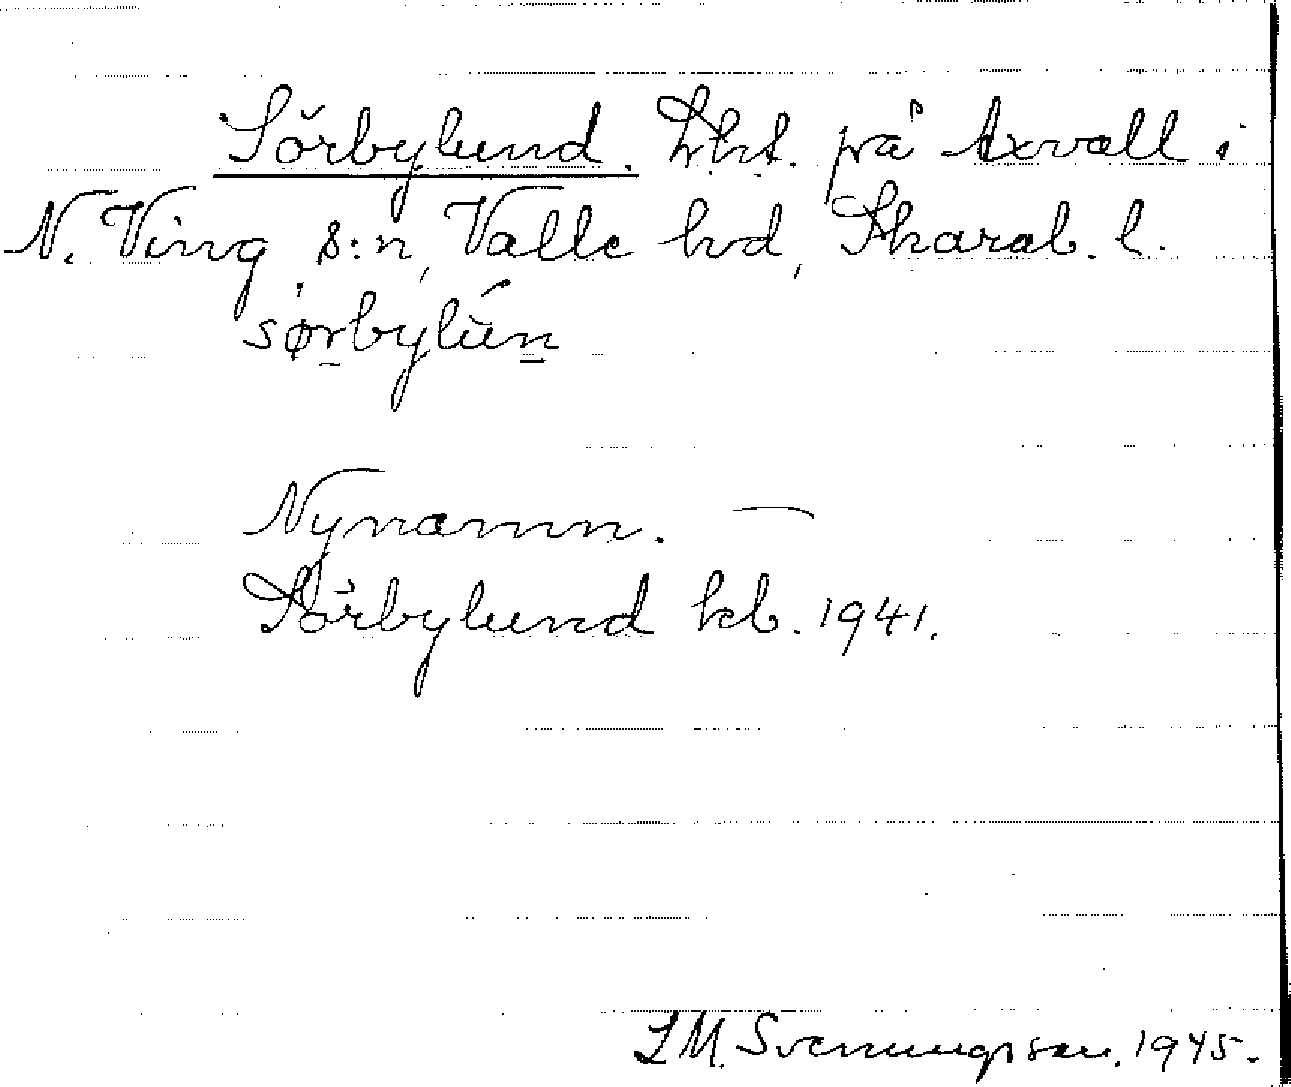 Sörbylund. Lht. på Axvall i
N. Ving s:n, Valle hd, Skarab. l.
sørbylún
Nynamn. —
Sörbylund kb. 1941.
L M. Svenungsson. 1945.